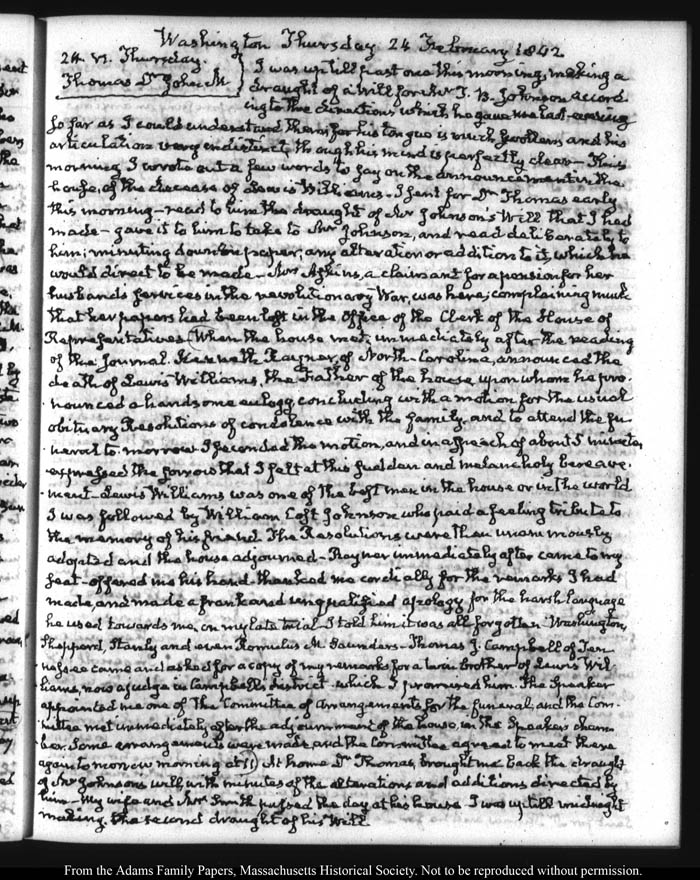 Washington Thursday 24 February 1842
24. VI. Thursday.
Thomas Dr John M
I was up till past one this morning, making a
draught of a Will for Mr J. B. Johnson accord
ing to the directions which he gave me last evening
so far as I could understand them for his tongue is much swollen and his
articulation very indistinct, though his mind is perfectly clear – This
morning I wrote out a few words to say on the announcement in the
house, of the decease of Lewis Williams – I sent for Dr Thomas early
this morning – read to him the draught of Mr Johnson's Will that I had
made – gave it to him to take to Mr Johnson, and read deliberately to
him; minuting down on paper, any alteration or addition to it, which he
would direct to be made – Mrs Adkins, a claimant for a pension for her
husband's services in the revolutionary War, was here; complaining much
that her papers had been left in the Office of the Clerk of the House of
Representatives. When the house met; immediately after the reading
of the Journal. Kenneth Rayner, of North-Carolina, announced the
death of Lewis Williams, the Father of the house upon whom he pro-
nounced a handsome eulogy, concluding with a motion for the usual
obituary Resolutions of condolence with the family, and to attend the fu-
neral to-morrow I seconded the motion, and in a speech of about 5 minutes
expressed the sorrow that I felt at this sudden and melancholy bereave-
ment – Lewis Williams was one of the best men in the house or in the world
I was followed by William Cost Johnson who paid a feeling tribute to
the memory of his friend The Resolutions were then unanimously
adopted and the house adjourned – Rayner immediately after came to my
seat – offered me his hand thanked me cordially for the remarks I had
made, and made a frank and unqualified apology for the harsh language
he used towards me, on my late trial – I told him it was all forgotten Washington,
Sheppard, Stanly and even Romulus M. Saunders – Thomas J. Campbell of Ten
nessee came and asked for a copy of my remarks for a twin brother of Lewis Wil
liams, now a judge in Campbell's district which I promised him. The Speaker
appointed me one of the Committee of Arrangements for the funeral, and the Com-
mittee met immediately after the adjournment of the house, in the Speaker's cham-
ber. Some arrangements were made and the Committee agreed to meet there
again to morrow morning at 11) At home Dr Thomas, brought me back the draught
of Mr Johnson's will, with minutes of the alterations and additions directed by
him – My wife and Mrs Smith passed the day at his house I was up till midnight
making the second draught of his Will.
From the Adams Family Papers, Massachusetts Historical Society. Not to be reproduced without permission.